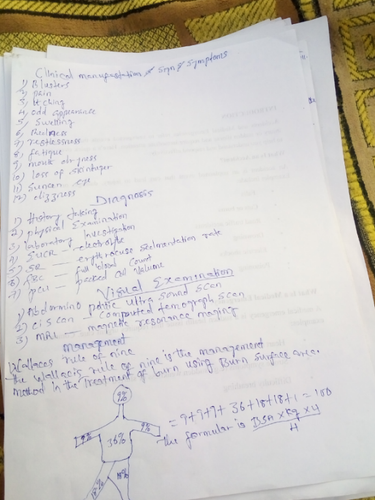 Clinical manifestation / sign & symptoms
1) Blusters
2) pain
3) Itching
4) odd appearance
5) Swelling
6) Redness
7) restlessness
8) fatigue
9) mouth dryness
10) loss of skinturger
11) Suncen eye
12) dizziness
Diagnosis
1) History taking
2) physical Examination
3) laboratory Investigation
4) EUCR — electrolyte
5) ESR — erythrocyte Sedimentation rate
6) FBC — full blood Count
7) pcv — packed cell Volume
Visual Examination
1) Abdomino pelvic Ultra Sound scan
2) CT Scan — Computed tomograph Scan
3) MRI — magnetic resonance imaging
management
Wallaces rule of nine
The Wallacis rule of nine is the management
method in the treatment of burn using Burn Surface area.
9%
9%
36%
9%
18%
18%
= 9+9+9+ 36+18+18+1 = 100
The formular is BSA x kg x 4
4